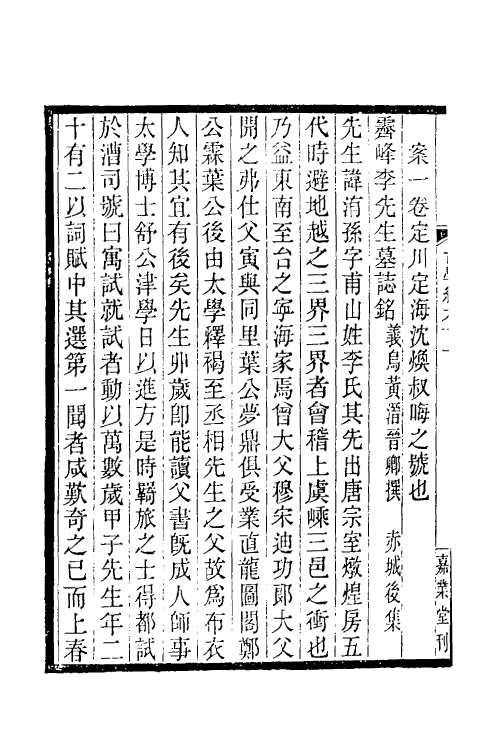 案一卷定川定海沈煥叔晦之號也
霽峰李先生墓誌銘 義烏黃溍晉卿撰 赤城後集
先生諱洧孫字甫山姓李氏其先出唐宗室燉煌房五
代時避地越之三界三界者會稽上虞嵊三邑之衝也
乃益東南至台之寧海家焉曾大父穆宋迪功郎大父
開之弗仕父寅與同里葉公夢鼎俱受業直龍圖閣鄭
公霖葉公後由太學釋褐至丞相先生之父故為布衣
人知其宜有後矣先生丱歲卽能讀父書旣成人師事
太學博士舒公津學日以進方是時羇旅之士得都試
於漕司號曰寓試就試者動以萬數歲甲子先生年二
十有二以詞賦中其選第一聞者咸歎奇之已而上春
嘉業堂刊